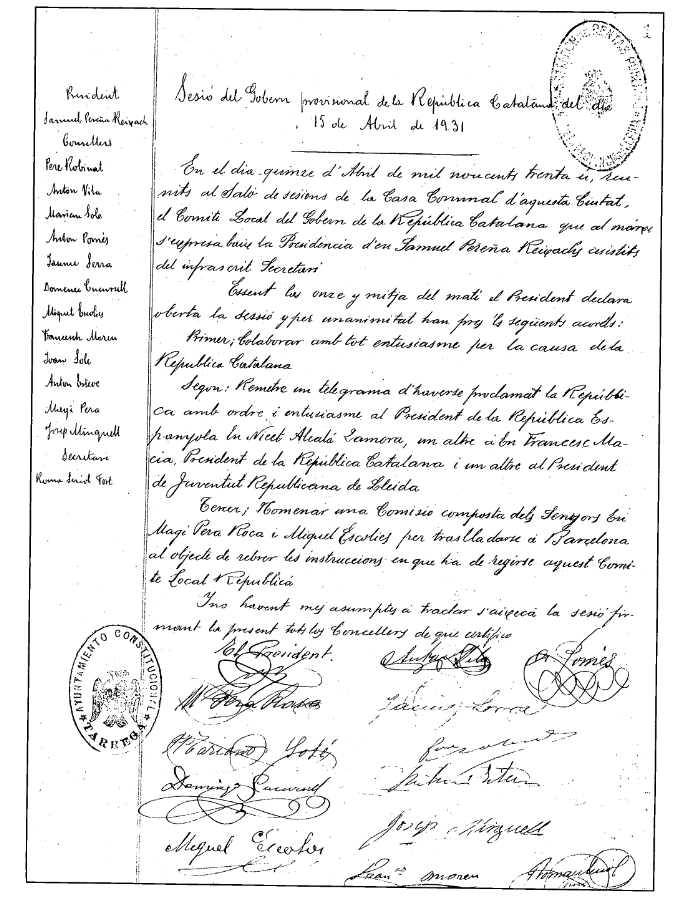 1
President
Samuel Pereña Reixachs
Consellers
Pere Robinat
Anton Vila
Marian Sole
Anton Pomés
Jaume Serra
Domenec Cucurull
Miquel Escolies
Francesch Moreu
Joan Sole
Anton Esteve
Magi Pera
Josep Minguell
Secretari
Roma Font
Sesió del Gobern provisional de la República Catalana del dia
15 de Abril de 1931
En el dia quinze d'Abril de mil noucents trenta u, reu-
nits al Saló de sesions de la Casa Comunal d'aquesta Ciutat,
el Comite Local del Gobern de la República Catalana que al marge
s'expresa baix la Presidencia d'en Samuel Pereña Reixachs asistits
del infrascrit Secretari
Essent les onze y mitja del mati el President declara
oberta la sessió y per unanimitat han pres els següents acords:
Primer; Colaborar amb tot entusiasme per la causa de la
Republica Catalana
Segon: Remetre un telegrama d'haverse proclamat la Repúbli-
ca amb ordre i entusiasme al President de la República Es-
panyola En Nicet Alcalá Zamora, un altre á En Francesc Ma-
cia, President de la República Catalana i un altre al President
de Juventut Republicana de Lleida
Tercer; Nomenar una Comisió composta dels Senyors En
Magi Pera Roca i Miquel Escolies per traslladarse á Barcelona
al objecte de rebrer les instruccions en que ha de regirse aquest Comi-
te Local Republicá
I no havent mes asumptes á tractar s'aixeca la sesió fir-
mant la present tots los Concellers de que certifico
El President.
Anton Vila
A Pomés
M. Pera Roca
Jaume Serra
Mariano Solé
Domingo Cucurull
Josep Minguell
Miquel Escolies
Franco Moreu
AYUNTAMIENTO CONSTITUCIONAL
TARREGA